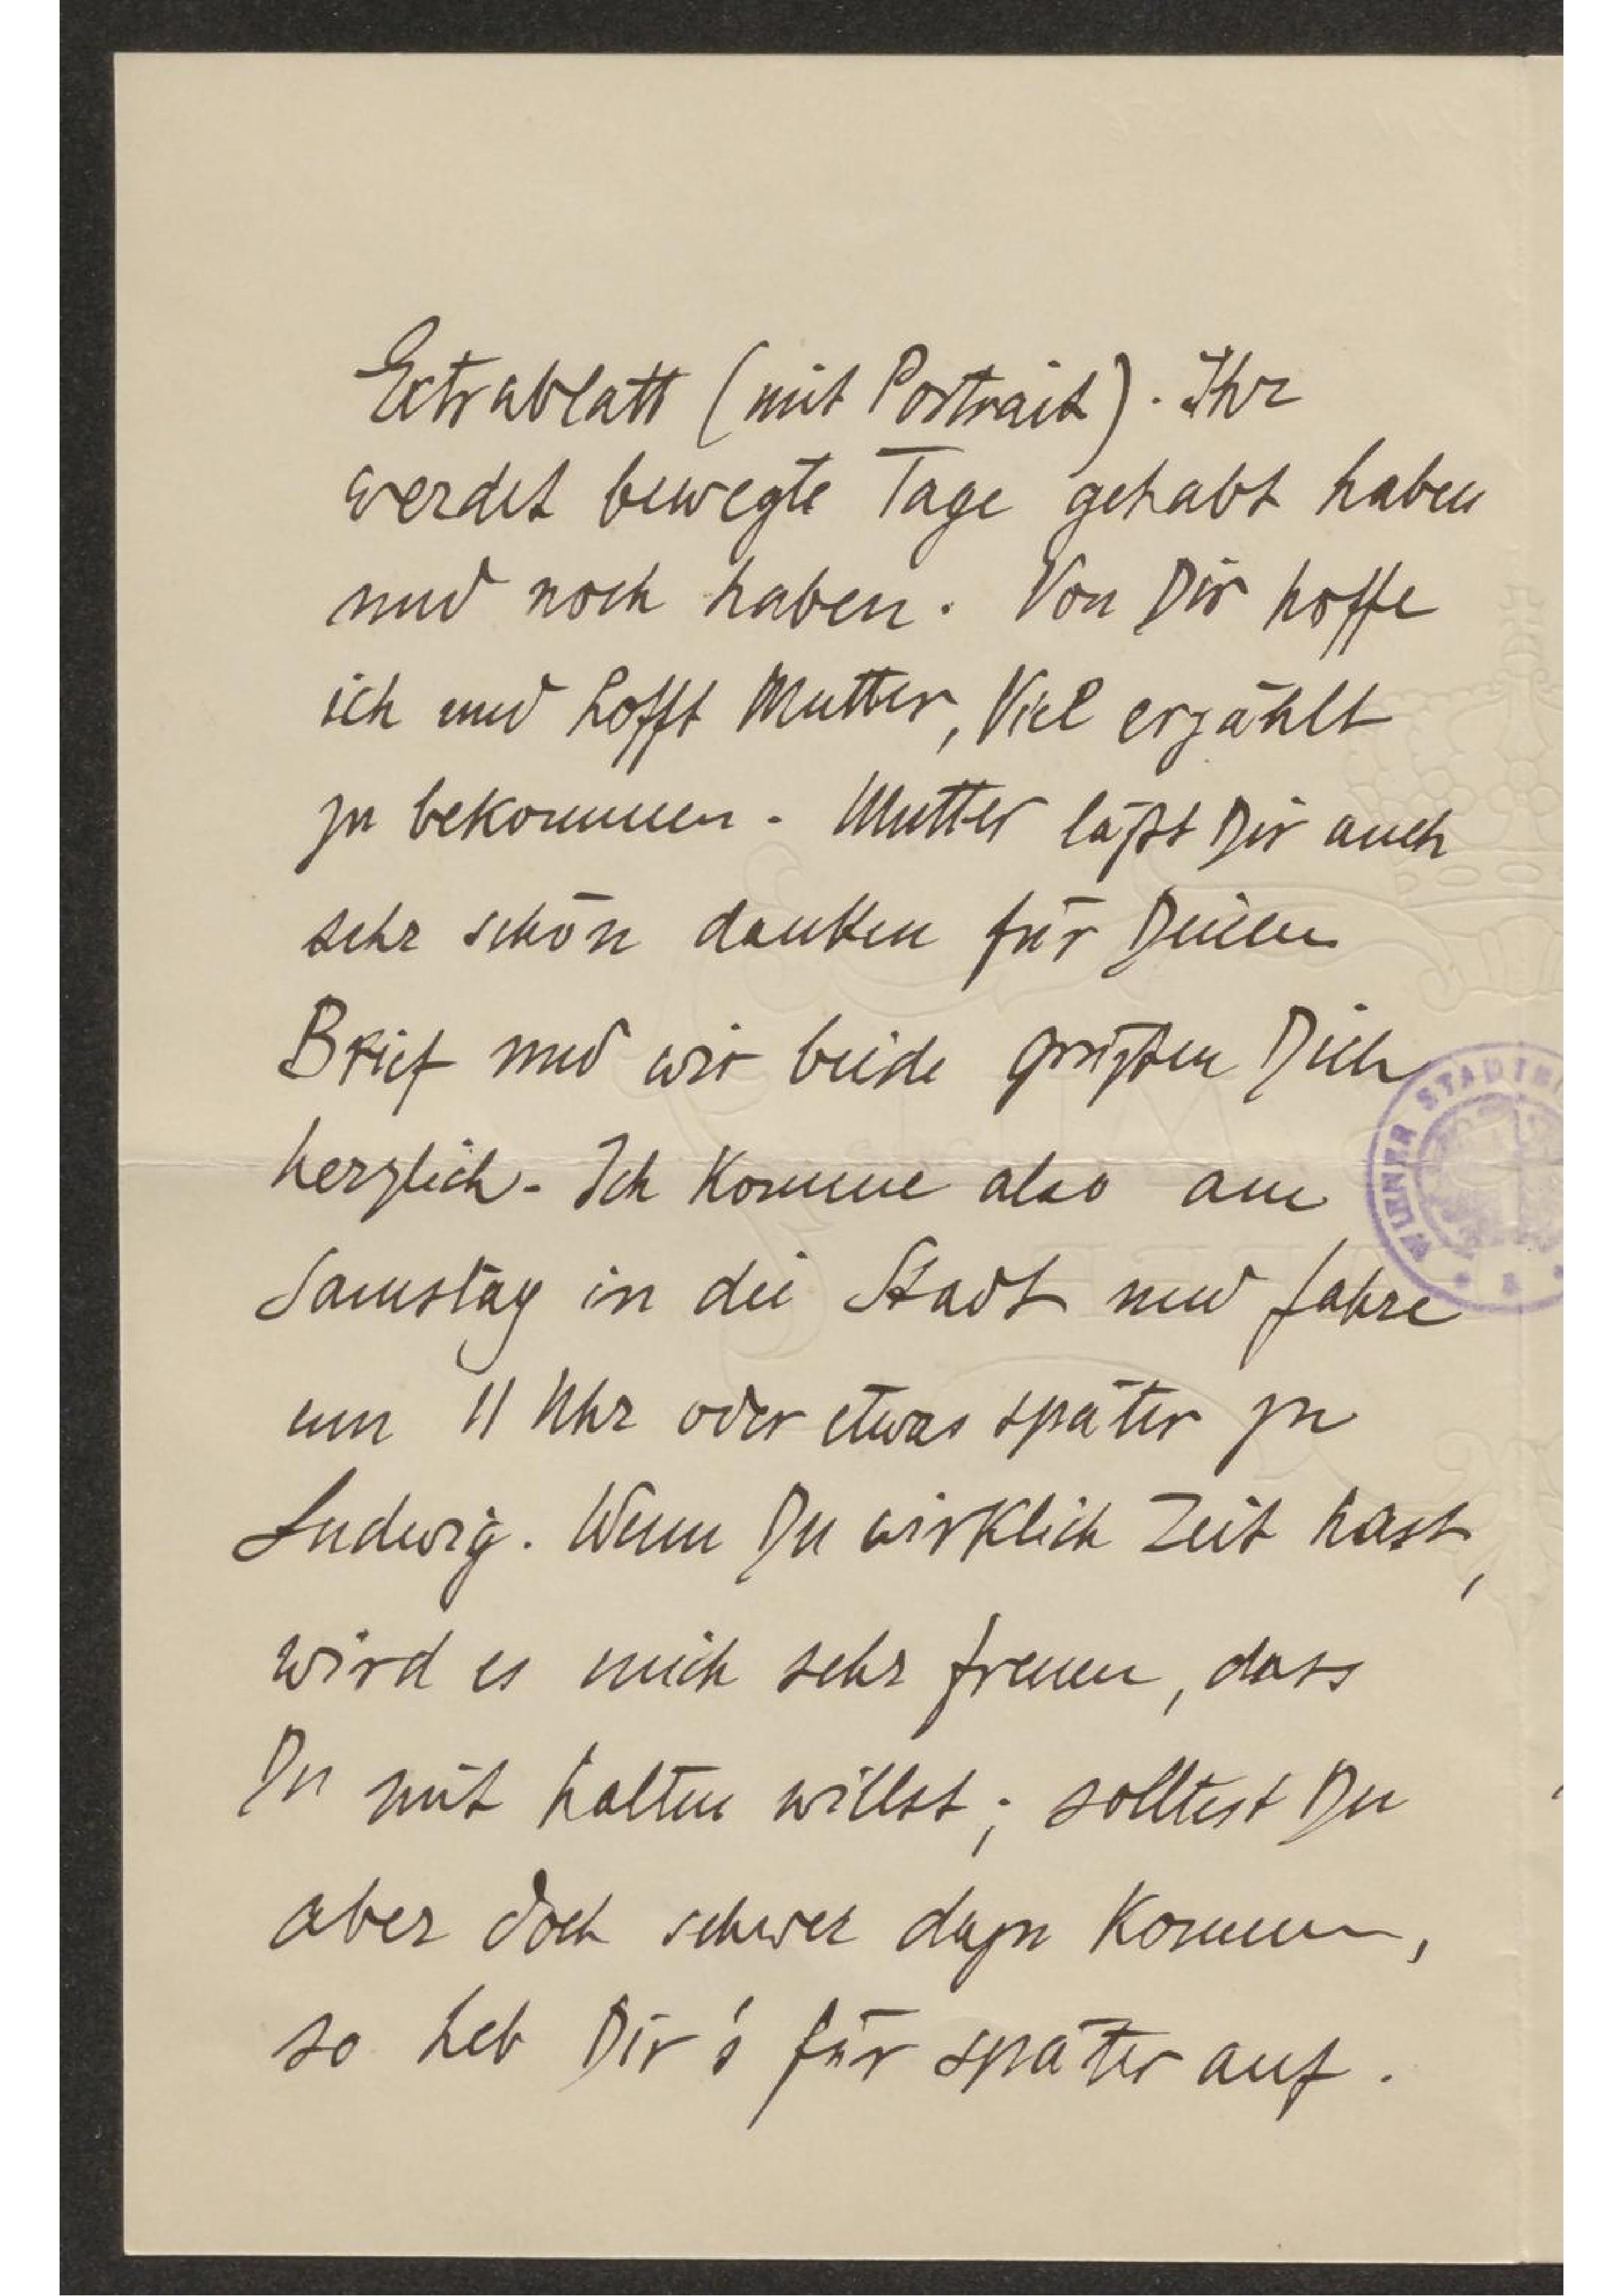 Extrablatt (mit Portrait). Ihr
werdet bewegte Tage gehabt haben
und noch haben. Von Dir hoffe
ich und hofft Mutter, Viel erzählt
zu bekommen. Mutter läßt Dir auch
sehr schön danken für Deinen
Brief und wir beide grüßen Dich
herzlich. Ich komme also am
Samstag in die Stadt und fahre
um 11 Uhr oder etwas später zu
Ludwig. Wenn Du wirklich Zeit hast,
wird es mich sehr freuen, dass
Du mit halten willst; solltest Du
aber doch schwer dazu kommen,
so heb Dir's für später auf.
WIENER STADTBI